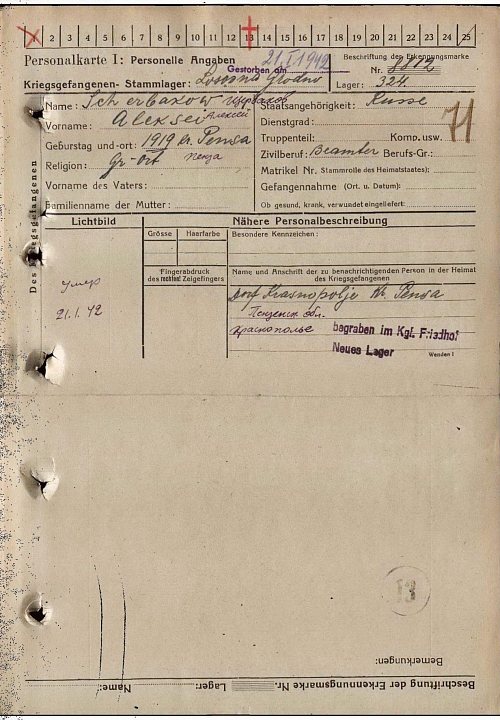 2 3 4 5 6 7 8 9 10 11 12 13 14 15 16 17 18 19 20 21 22 23 24 25
Personalkarte I: Personelle Angaben
21.I.1942
Gestorben am
Beschriftung der Erkennungsmarke
Nr. 8812
Kriegsgefangenen- Stammlager: Lososna Grodno
Lager: 324.
Des Kriegsgefangenen
Name: Scherbakow Щербаков
Vorname: Aleksei Алексей
Geburtstag und-ort: 1919 Kr. Pensa
Пенза
Religion: Gr-Ort
Vorname des Vaters:
Familienname der Mutter:
Staatsangehörigkeit: Russe
Dienstgrad:
Truppenteil: Komp. usw.
Zivilberuf: Beamter Berufs-Gr.:
Matrikel Nr. (Stammrolle des Heimatstaates):
Gefangennahme (Ort u. Datum):
Ob gesund, krank, verwundet eingeliefert:
71
Lichtbild
умер
21.1.42
Nähere Personalbeschreibung
Grösse Haarfarbe Besondere Kennzeichen:
Fingerabdruck
des rechten! Zeigefingers
Name und Anschrift der zu benachrichtigenden Person in der Heimat
des Kriegsgefangenen
Dorf Krasnopolje Kr. Pensa
Пензенск обл.
Краснополье
begraben im Kgf. Friedhof
Neues Lager
Wenden!
13
Bemerkungen:
Beschriftung der Erkennungsmarke Nr. Lager: Name: